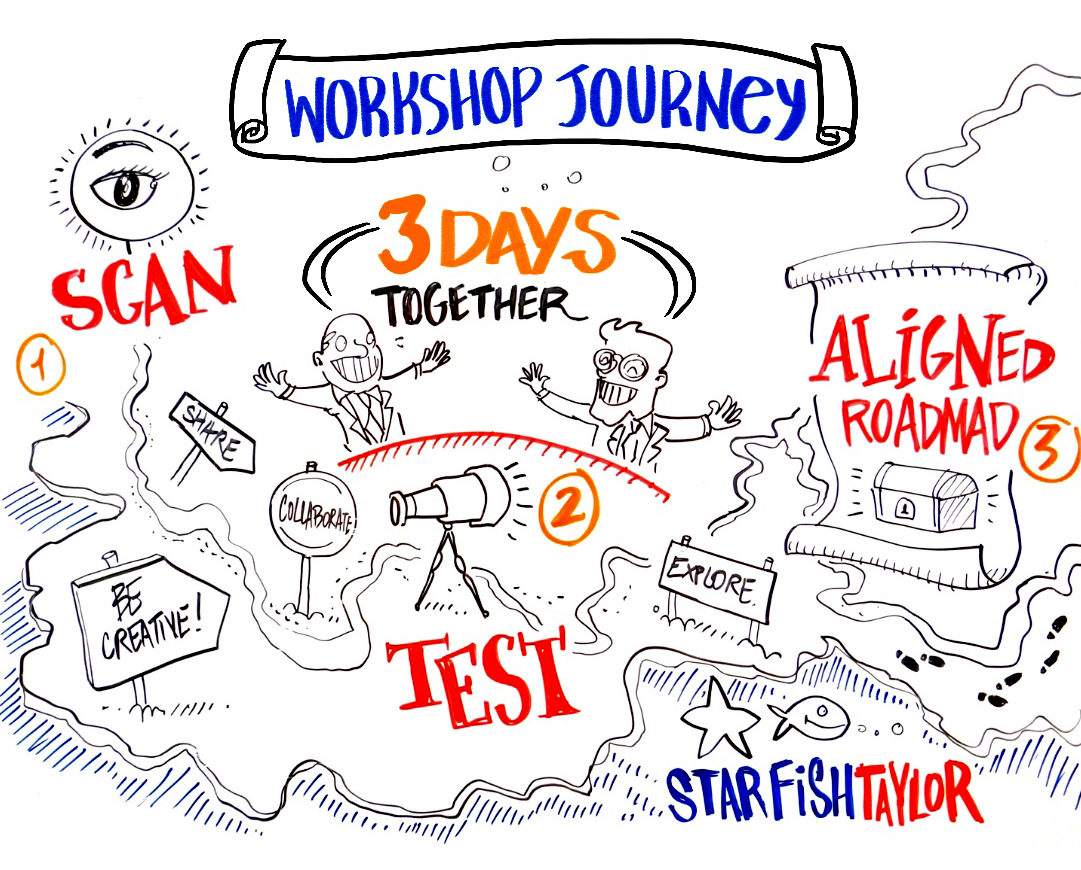 WORKSHOP JOURNEY
3 DAYS
TOGETHER
SCAN
1
SHARE
COLLABORATE
BE
CREATIVE!
2
TEST
EXPLORE
ALiGNED
ROADMAD
3
STARFiSHTAYLOR